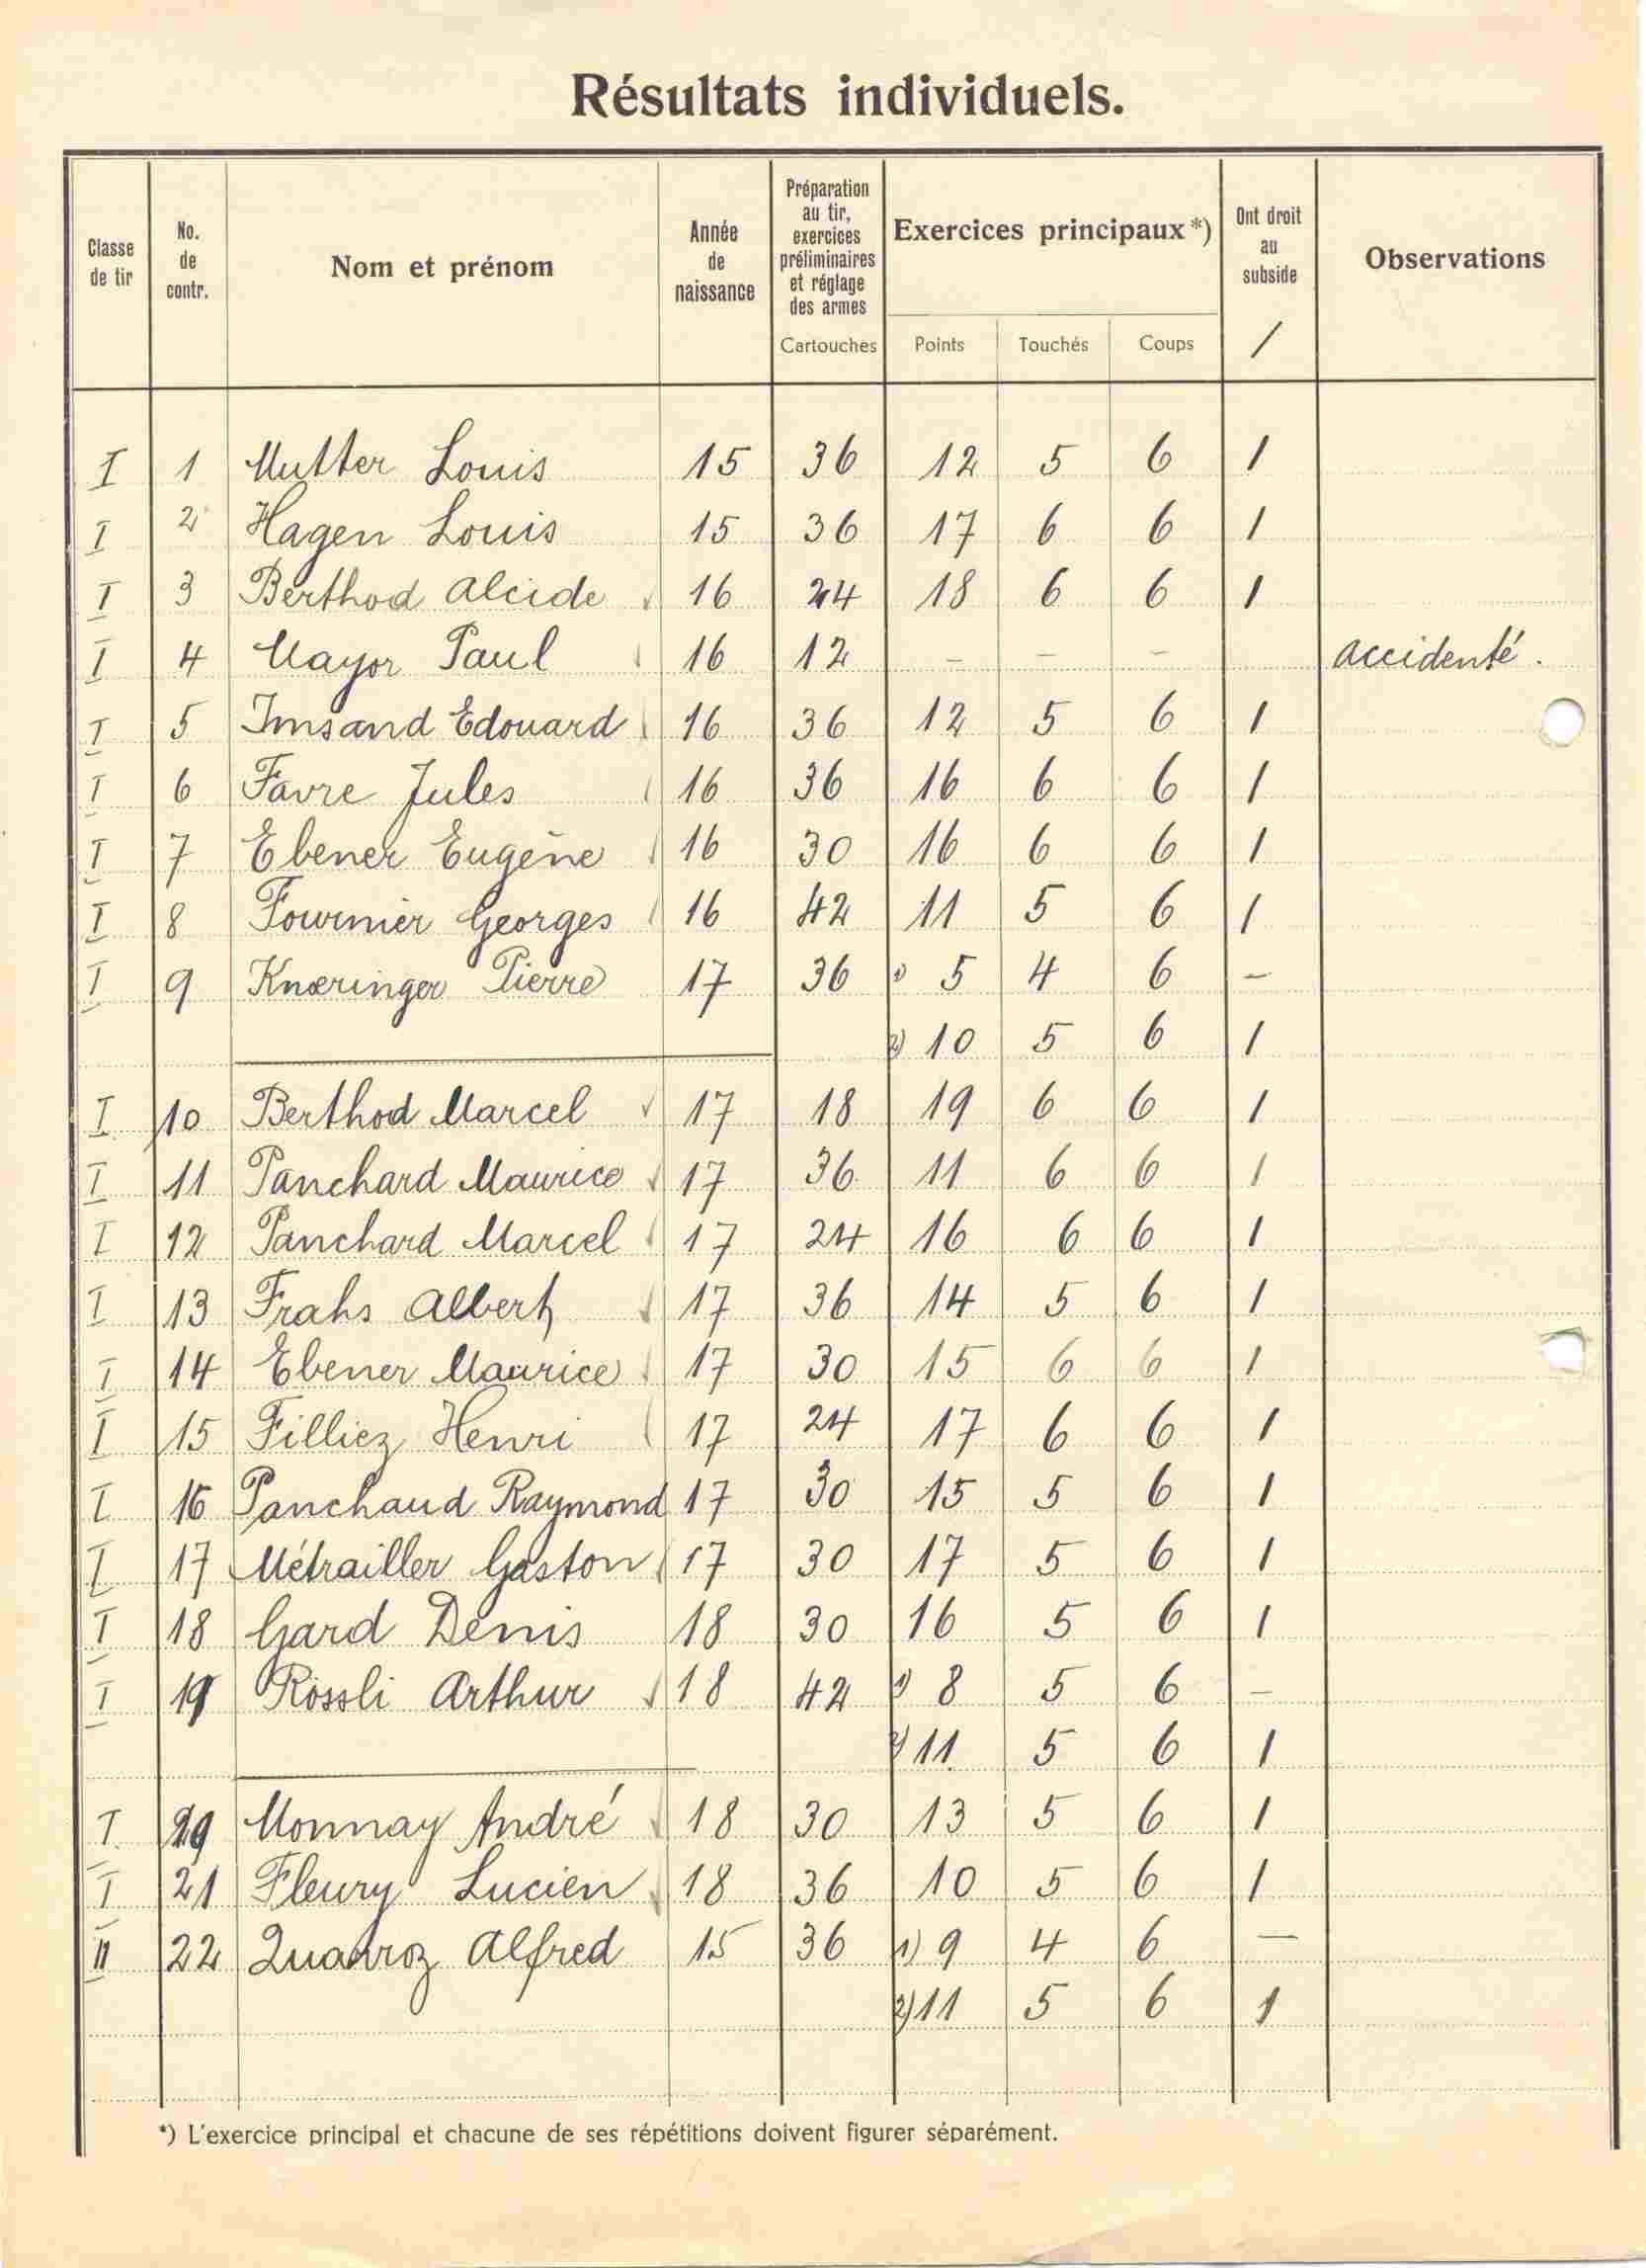 Résultats individuels.
Classe de tir | No. de contr. | Nom et prénom | Année de naissance | Préparation au tir, exercices préliminaires et réglage des armes Cartouches | Exercices principaux *) Points Touchés Coups | Ont droit au subside / | Observations
I 1 Mutter Louis 15 36 12 5 6 1
I 2 Hagen Louis 15 36 17 6 6 1
I 3 Berthod Alcide 16 24 18 6 6 1
I 4 Mayor Paul 16 12 – – – accidenté.
I 5 Imsand Edouard 16 36 12 5 6 1
I 6 Favre Jules 16 36 16 6 6 1
I 7 Ebener Eugène 16 30 16 6 6 1
I 8 Fournier Georges 16 42 11 5 6 1
I 9 Knœringer Pierre 17 36 1) 5 4 6 –
2) 10 5 6 1
I 10 Berthod Marcel 17 18 19 6 6 1
I 11 Panchard Maurice 17 36 11 6 6 1
I 12 Panchard Marcel 17 24 16 6 6 1
I 13 Frahs Albert 17 36 14 5 6 1
I 14 Ebener Maurice 17 30 15 6 6 1
I 15 Filliez Henri 17 24 17 6 6 1
I 16 Panchaud Raymond 17 30 15 5 6 1
I 17 Métrailler Gaston 17 30 17 5 6 1
I 18 Gard Denis 18 30 16 5 6 1
I 19 Rössli Arthur 18 42 1) 8 5 6 –
2) 11 5 6 1
I Monnay André 18 30 13 5 6 1
I 21 Fleury Lucien 18 36 10 5 6 1
II 22 Quarroz Alfred 15 36 1) 9 4 6 —
2) 11 5 6 1
*) L'exercice principal et chacune de ses répétitions doivent figurer séparément.